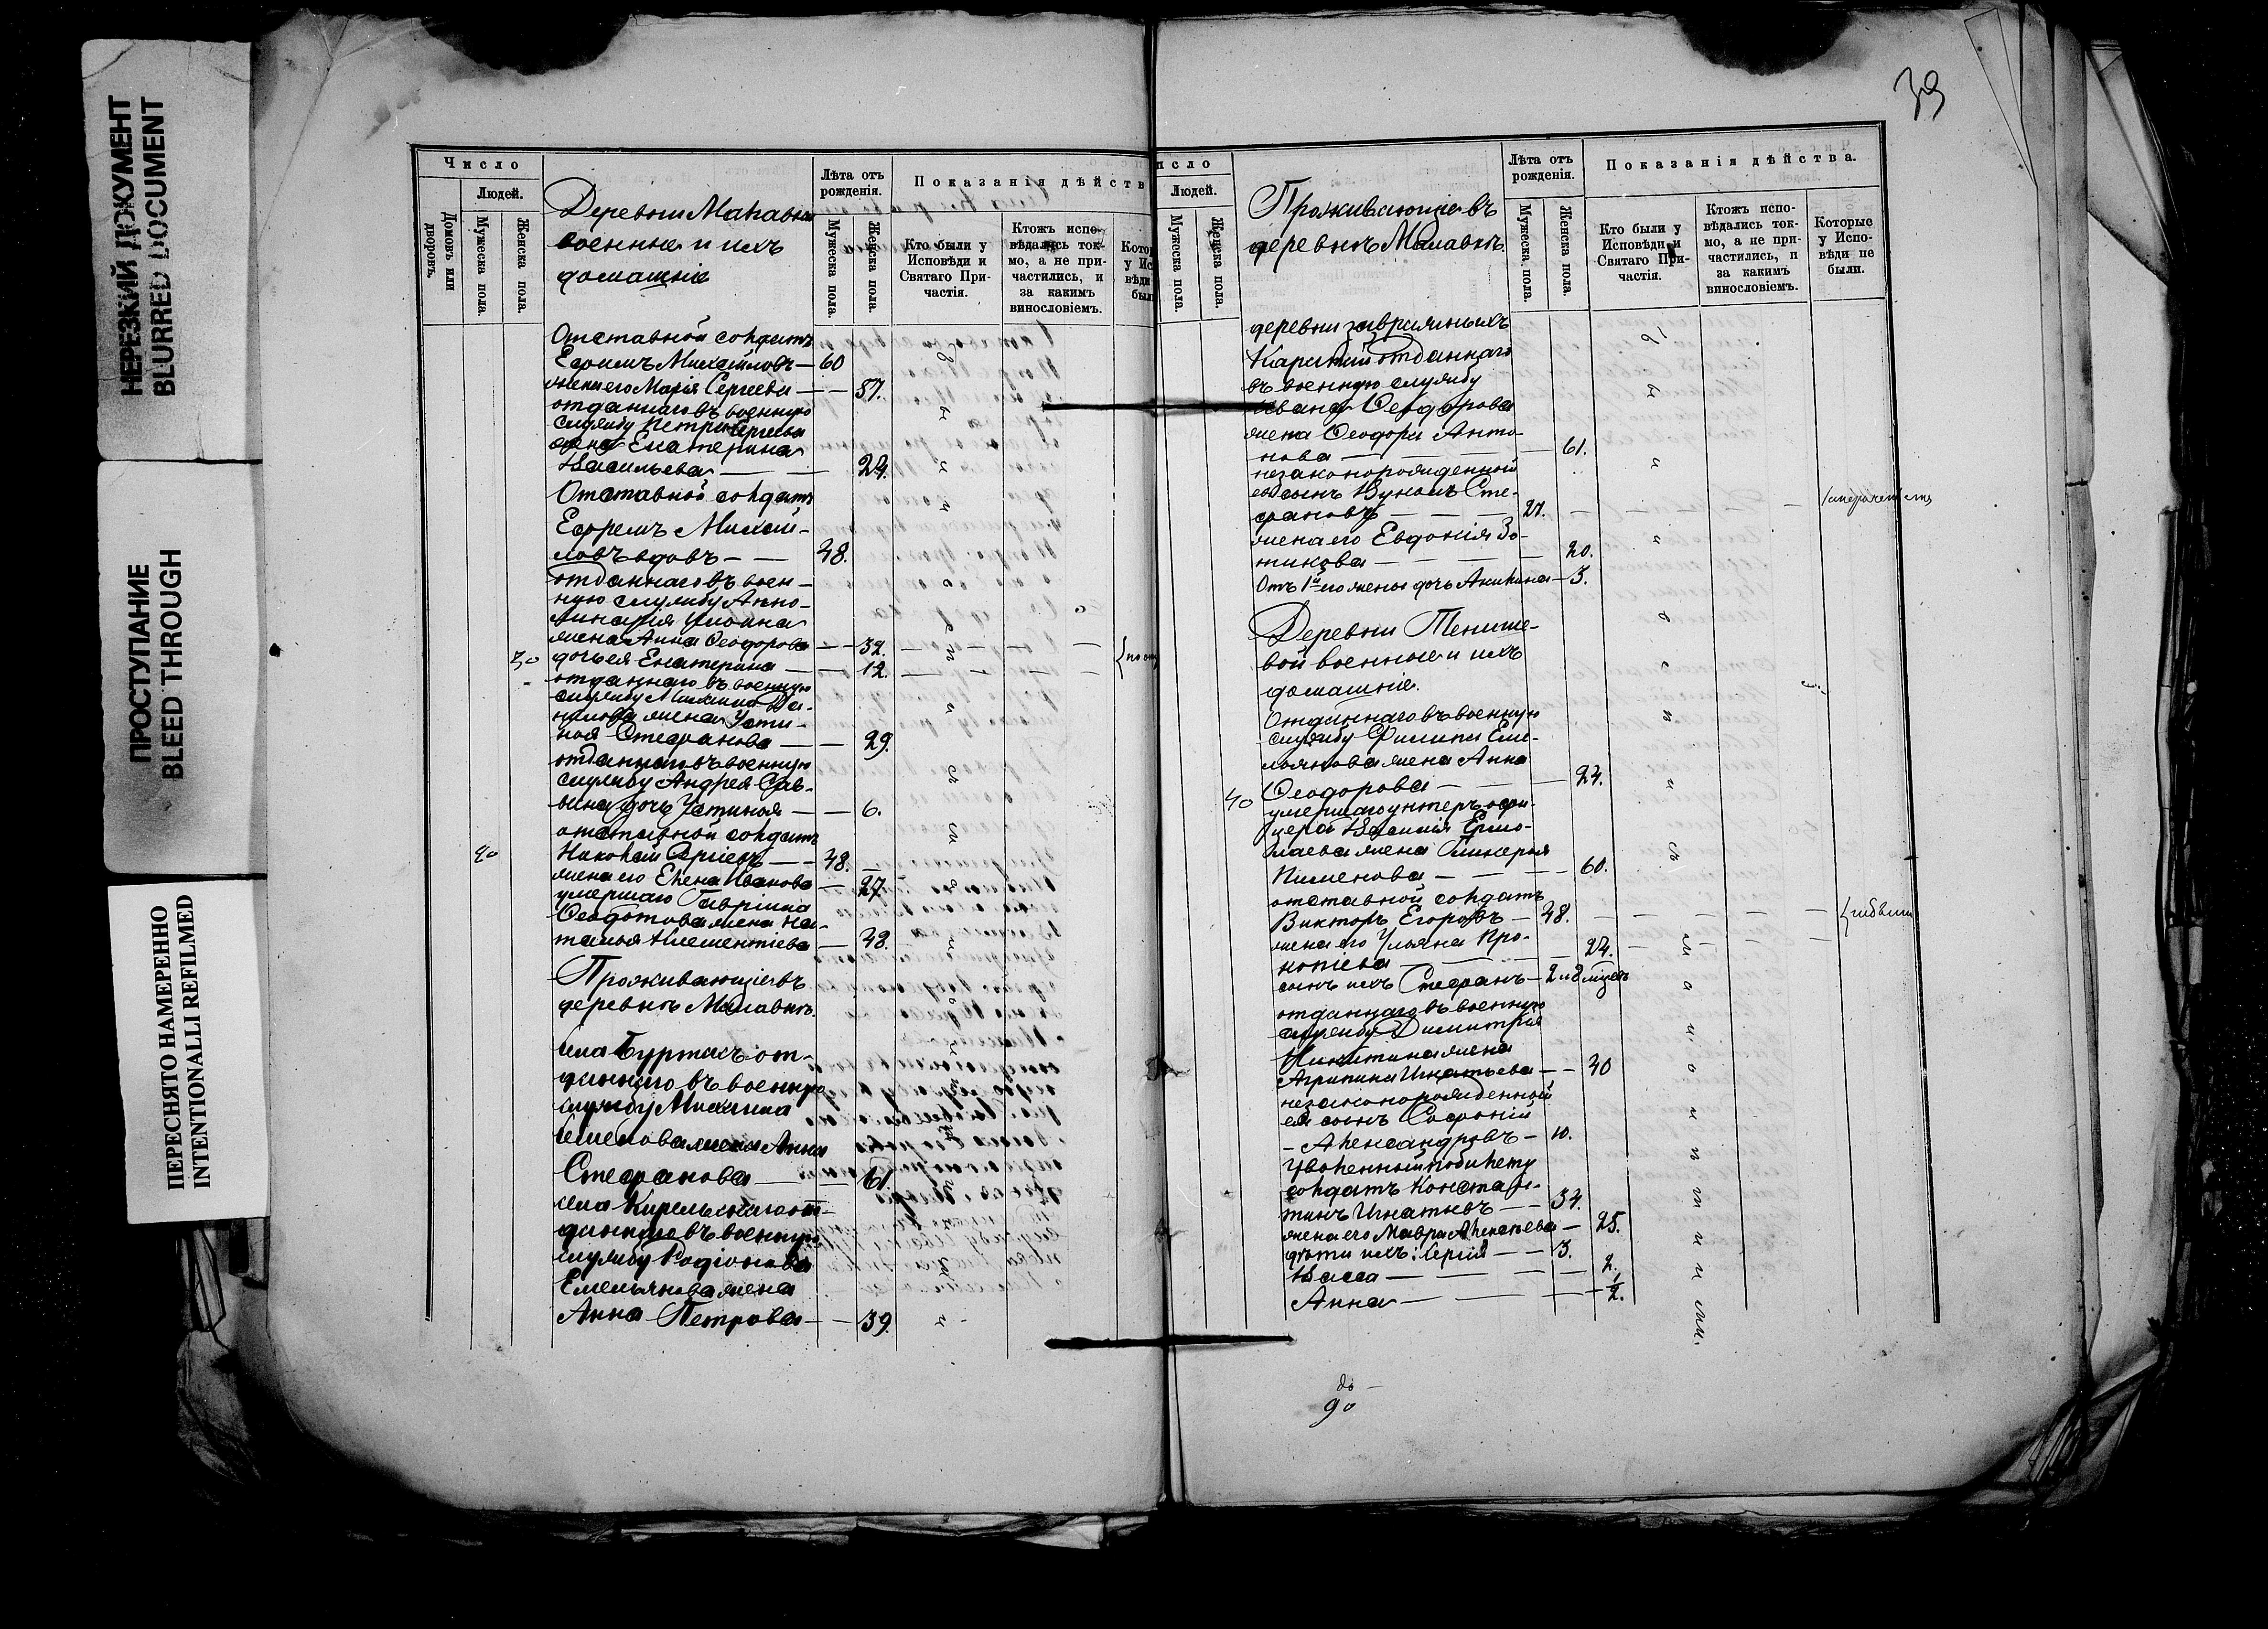 НЕРЕЗКИЙ ДОКУМЕНТ
BLURRED DOCUMENT
ПРОСТУПАНИЕ
BLEED THROUGH
ПЕРЕСНЯТО НАМЕРЕННО
INTENTIONALLI REFILMED
Число
Людей.
Домовъ или дворовъ.
Мужеска пола.
Женска пола.
Деревни
военные и ихъ
домашніе
Лѣта отъ рожденія.
Мужеска пола.
Женска пола.
Показанія дѣйств
Кто были у Исповѣди и Святаго Причастія.
Ктожъ исповѣдались токмо, а не причастились, и за какимъ винословіемъ.
Отставной солдатъ
Ефимъ Михайловъ — 60
жена его Марія Сергеева — — 57.
отданнаго въ военную
службу Петра Сергеева
жена Екатерина
Васильева — — 24.
Отставной солдатъ
Ефремъ Михай-
ловъ вдовъ — — 48.
отданнаго въ воен-
ную службу Аппо-
линарія
жена Анна Ѳеодорова — — 32.
30 дочь ея Екатерина — — 12.
отданнаго въ военную
службу Михаила Да-
нилова жена Усти-
нія Стефанова — — 29.
отданнаго въ военную
службу Андрея Сав-
вина дочь Устинія — — 6.
отставной солдатъ
40 Николай Сергіевъ — — 48.
жена его Елена Иванова — 27.
умершаго Гавріила
Ѳеодотова жена На-
талья Клементіева — 48.
Проживающіе въ
деревнѣ Малавкѣ.
села Буртасъ от-
даннаго въ военную
службу Михаила
жена Анна
Стефанова — 61
села отъ-
даннаго въ военную
службу Родіонова
Емельянова жена
Анна Петрова — — 39.
39
исло
Людей.
Мужеска пола.
Женска пола.
Проживающіе въ
деревнѣ Малавкѣ.
Лѣта отъ рожденія.
Мужеска пола.
Женска пола.
Показанія дѣйства.
Кто были у Исповѣди и Святаго Причастія.
Ктожъ исповѣдались токмо, а не причастились, и за какимъ винословіемъ.
Которые у Исповѣди не были.
деревни
отданнаго
въ военную службу
Ивана Ѳеодорова
жена Ѳеодора Анто-
нова — — — 61.
незаконорожденной
ея сынъ Вуколъ Сте-
фановъ — — — 27.
жена его Евдокія Зо-
тикова — — — 20.
Отъ 1й его жены дочь Акилина — 3.
Деревни Тенише-
вой военные и ихъ
домашніе.
Отданнаго въ военную
службу Филипа Еме-
льянова жена Анна
40 Ѳеодорова — — 24.
умершаго унтеръ офи-
цера Василія Ермо-
лаева жена Гликерья
Пименова — — — 60.
отставной солдатъ
Викторъ Егоровъ — 48.
жена его Ульяна Про-
копіева — — — 24.
сынъ ихъ Стефанъ — 2 и 8 мѣсяц
отданнаго въ военную
службу Димитрія
Никитина жена
Агрипина Игнатьева — — 40
незаконорожденной
ея сынъ Софоній
— Александровъ — 10.
Уволенный по билету
солдатъ Констан-
тинъ Игнатьевъ — — 34.
жена его Мавра Алексеева — 25.
дѣти ихъ: Сергія — — 3.
Васса — — — 2.
Анна — — — 1/2.
90